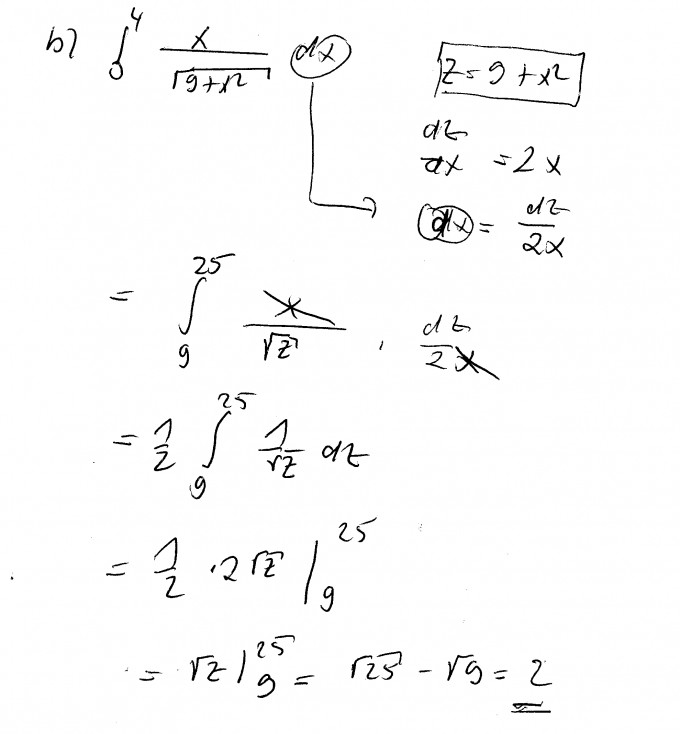 b) ∫₀⁴ x/√(9+x²) dx
z = 9 + x²
dz/dx = 2x
dx = dz/2x
= ∫₉²⁵ x/√z · dz/2x
= 1/2 ∫₉²⁵ 1/√z dz
= 1/2 · 2√z |₉²⁵
= √z |₉²⁵ = √25 - √9 = 2